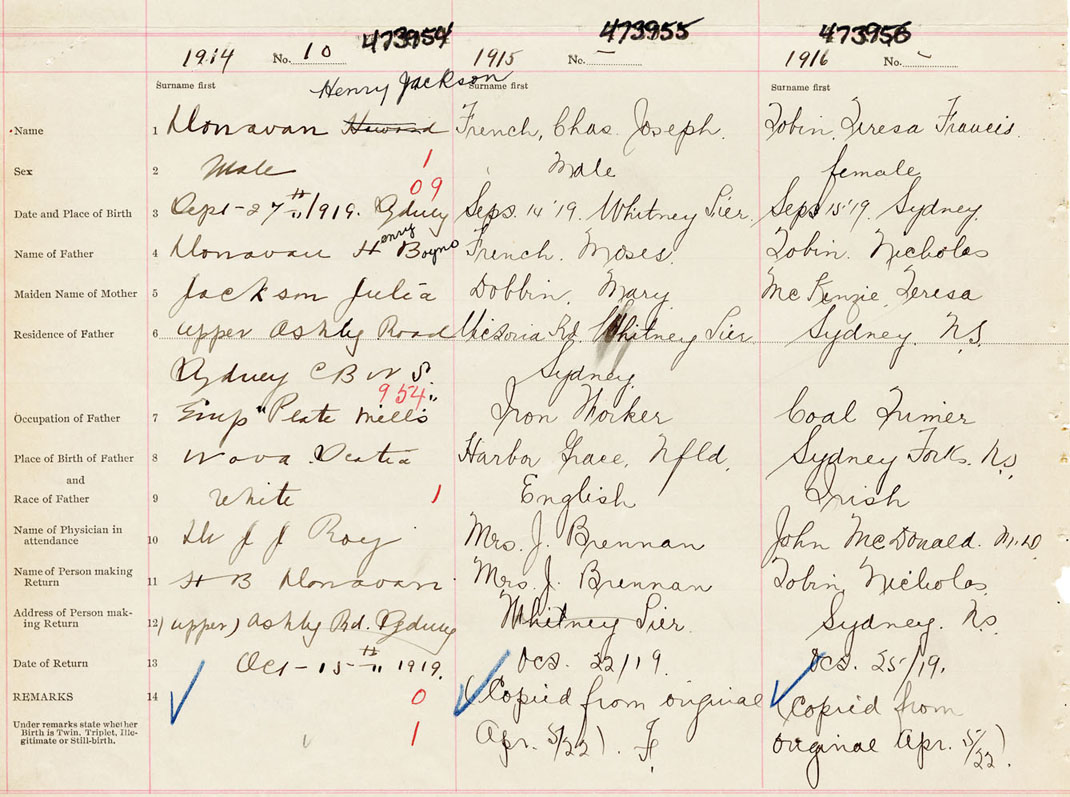 473954 473955 473956
1914 No. 10 1915 No. – 1916 No. –
Surname first Surname first Surname first
Henry Jackson
Name 1 Donavan Howard French, Chas. Joseph. Tobin, Teresa Francis.
Sex 2 Male 1 Male female
09
Date and Place of Birth 3 Sept-27th/1919. Sydney Sept. 14'19. Whitney Pier. Sept 15'19. Sydney.
Name of Father 4 Donavan Henry Boyno French. Moses. Tobin. Nicholas
Maiden Name of Mother 5 Jackson Julia Dobbin, Mary Mc Kenzie, Teresa
Residence of Father 6 upper Ashby Road Victoria Rd. Whitney Pier Sydney. N.S.
Sydney C B N S. Sydney.
954
Occupation of Father 7 Emp "Plate Mills" Iron Worker Coal Trimer
Place of Birth of Father 8 Nova Scotia Harbor Grace, Nfld. Sydney Forks. N.S
and
Race of Father 9 White 1 English Irish
Name of Physician in
attendance 10 Dr J J Roy Mrs. J. Brennan John McDonald. M.D.
Name of Person making
Return 11 H B Donavan Mrs. J. Brennan Tobin Nicholas.
Address of Person mak-
ing Return 12 (upper) Ashby Rd. Sydney Whitney Pier. Sydney. N.S
Date of Return 13 Oct-15th 1919. Oct. 22/19. Oct. 25/19.
REMARKS 14 0 (Copied from original (Copied from
Under remarks state whether
Birth is Twin, Triplet, Ille-
gitimate or Still-birth. 1 Apr. 5/22). F. original Apr. 5/22).